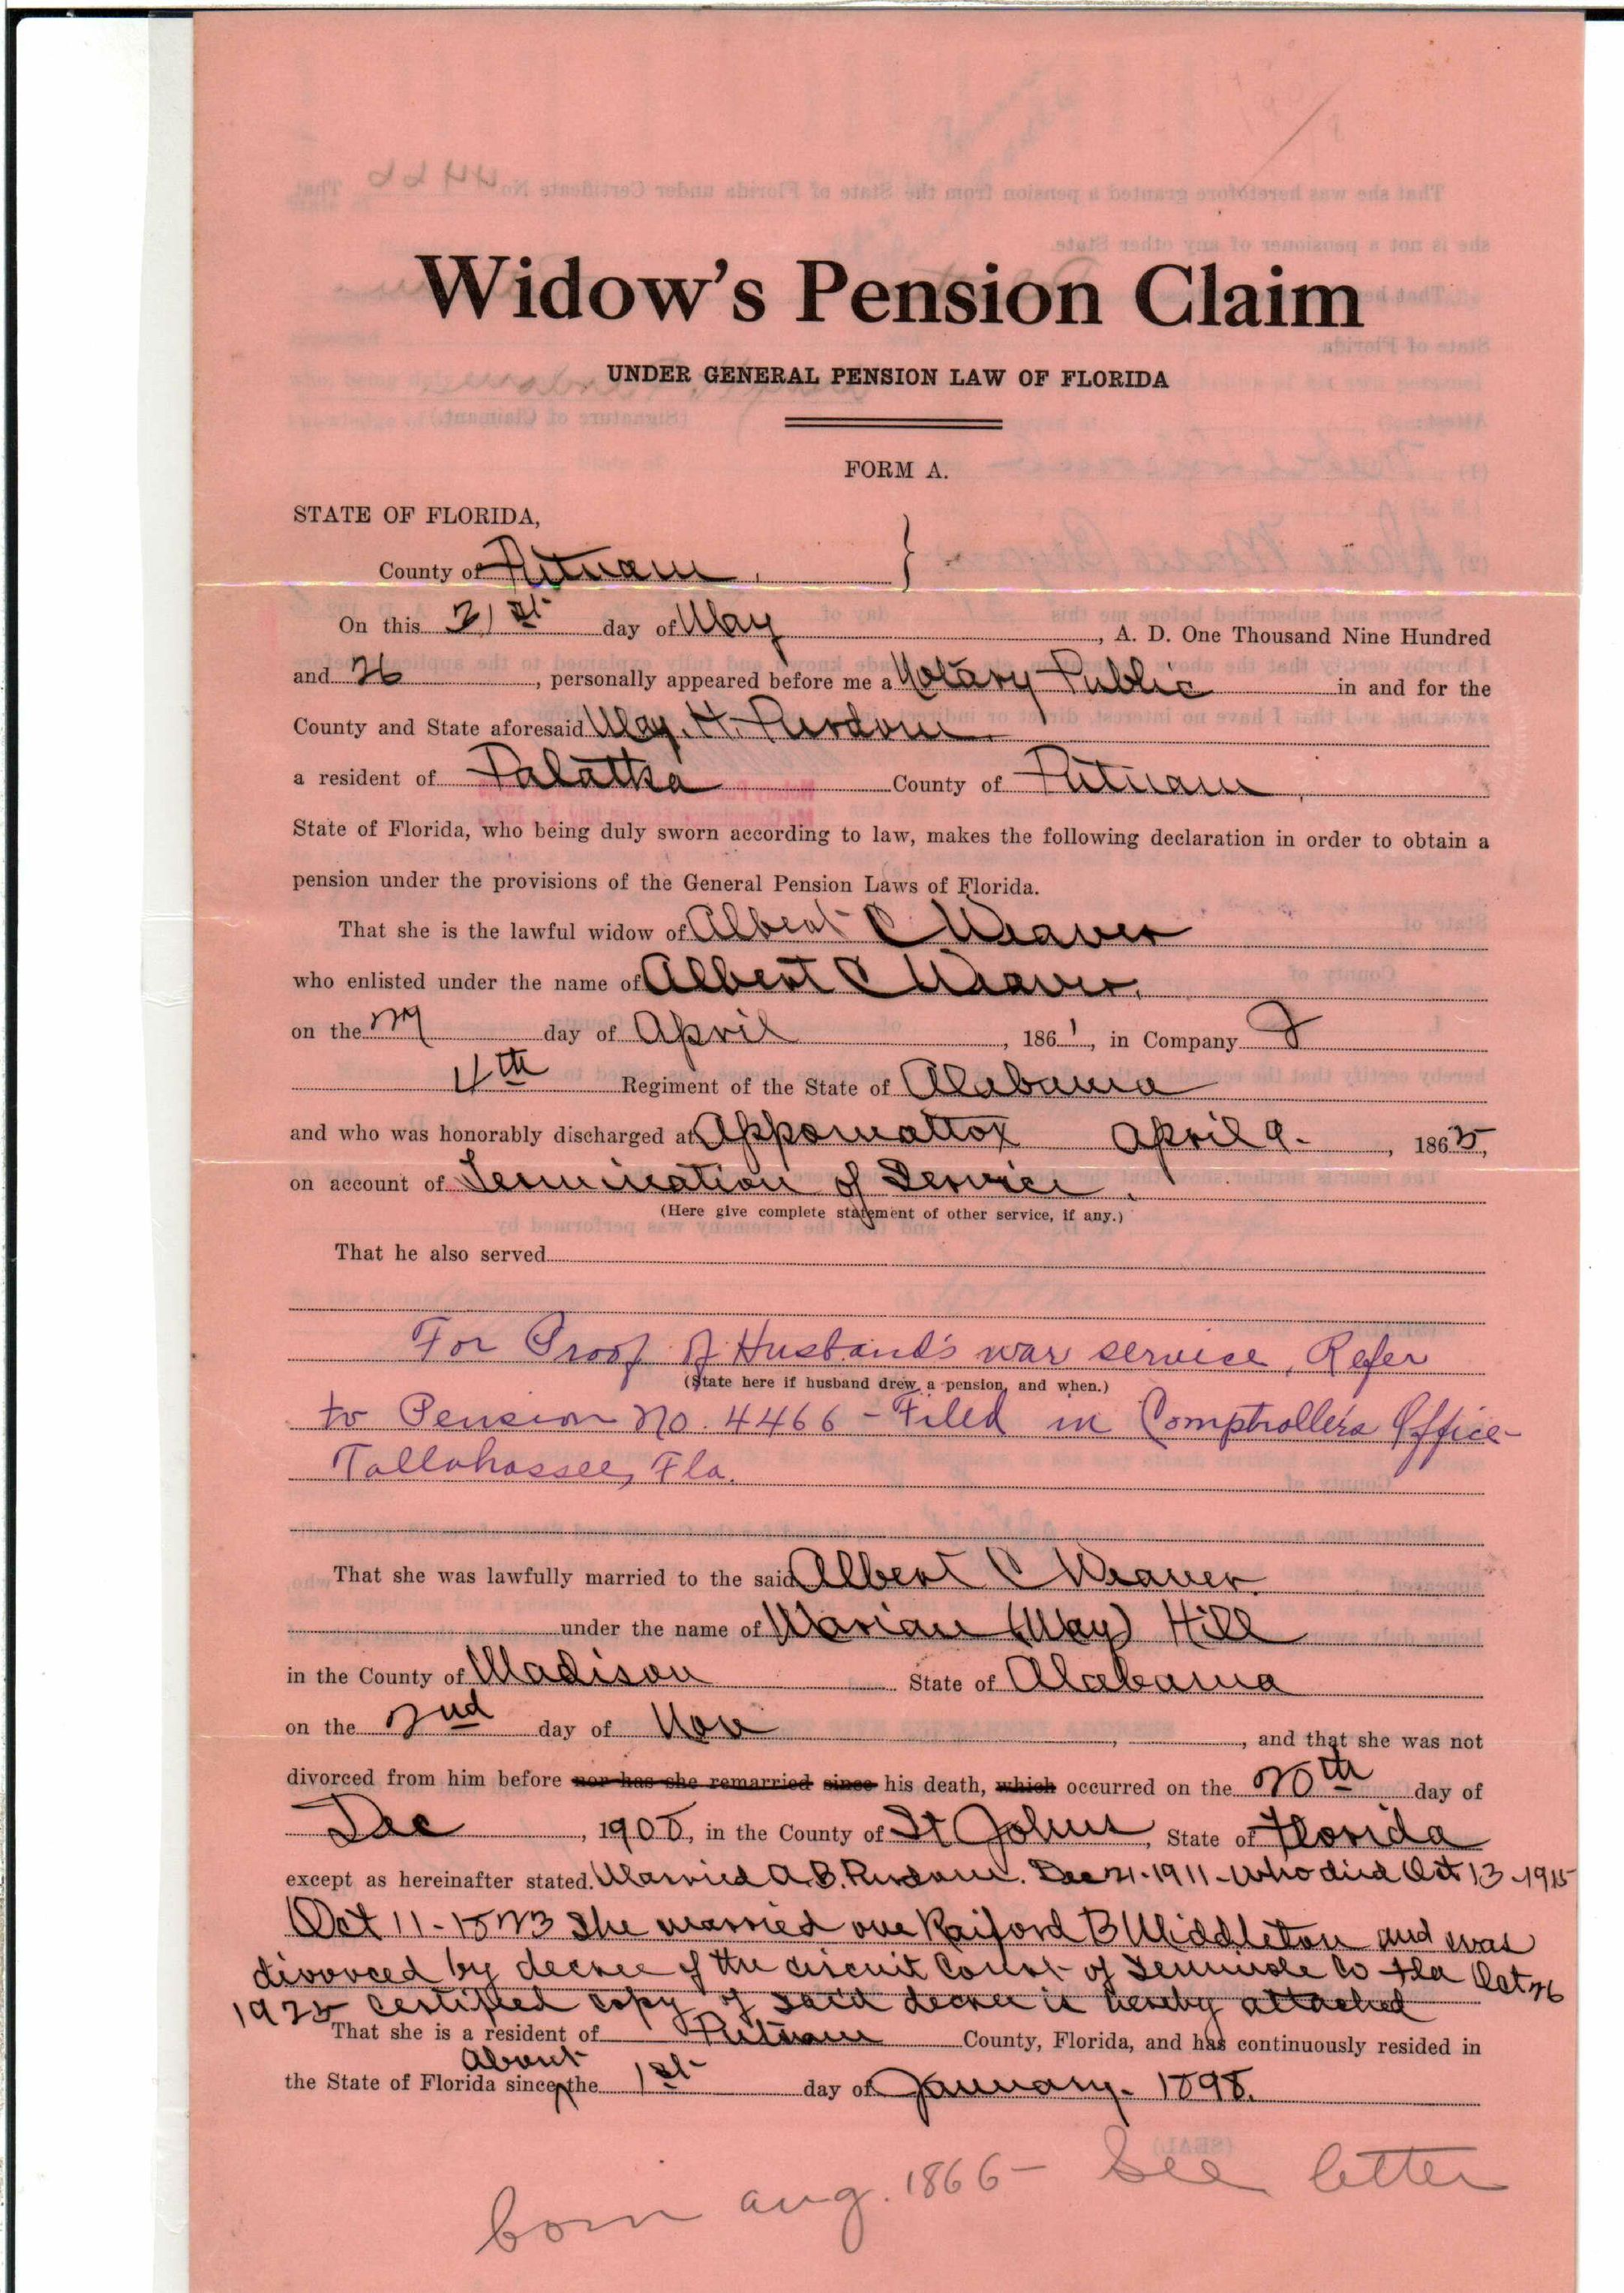 Widow's Pension Claim
UNDER GENERAL PENSION LAW OF FLORIDA
FORM A.
STATE OF FLORIDA,
County of Putnam,
On this 21st day of May, A. D. One Thousand Nine Hundred
and 26, personally appeared before me a Notary Public in and for the
County and State aforesaid May. H. Purdom.
a resident of Palatka County of Putnam,
State of Florida, who being duly sworn according to law, makes the following declaration in order to obtain a
pension under the provisions of the General Pension Laws of Florida.
That she is the lawful widow of Albert C Weaver
who enlisted under the name of Albert C Weaver.
on the day of April, 1861, in Company
4th Regiment of the State of Alabama
and who was honorably discharged at Appomattox April 9-, 1865,
on account of Termination of Service.
(Here give complete statement of other service, if any.)
That he also served
For Proof of Husband's war service, Refer
(State here if husband drew a pension, and when.)
to Pension No. 4466 - Filed in Comptroller's Office-
Tallahassee, Fla.
That she was lawfully married to the said Albert C Weaver.
under the name of Marian (May) Hill
in the County of Madison State of Alabama
on the 2nd day of Nov, , and that she was not
divorced from him before nor has she remarried since his death, which occurred on the 20th day of
Dec, 1908, in the County of St Johns, State of Florida
except as hereinafter stated. Married A.B. Purdom. Dec 21-1911-Who died Oct 13-1915
Oct 11- She married one Raiford B Middleton and was
divorced by decree of the circuit Court of Seminole Co Fla Oct 26
1925 certified copy of said decree is hereby attached
That she is a resident of Putnam County, Florida, and has continuously resided in
About
the State of Florida since the 1st day of January. 1898.
born aug. 1866- See letter